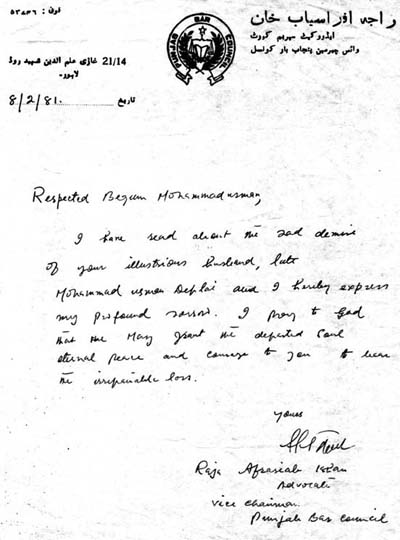 راجہ افراسیاب خان
ایڈووکیٹ سپریم کورٹ
وائس چیرمین پنجاب بار کونسل
فون : ۵۳۸۳۶
PUNJAB BAR COUNCIL
21/14 غازی علم الدین شہید روڈ
لاہور۔
تاریخ 8/2/81.
Respected Begum Mohammad usman,
I have read about the sad demise
of your illustrious husband, late
Mohammad usman Deplai and I hereby express
my profound sorrow. I pray to God
that He May grant the departed Soul
eternal peace and courage to you to bear
the irreparable loss.
yours
Raja Afrasiab Khan
Advocate
Vice Chairman
Punjab Bar Council